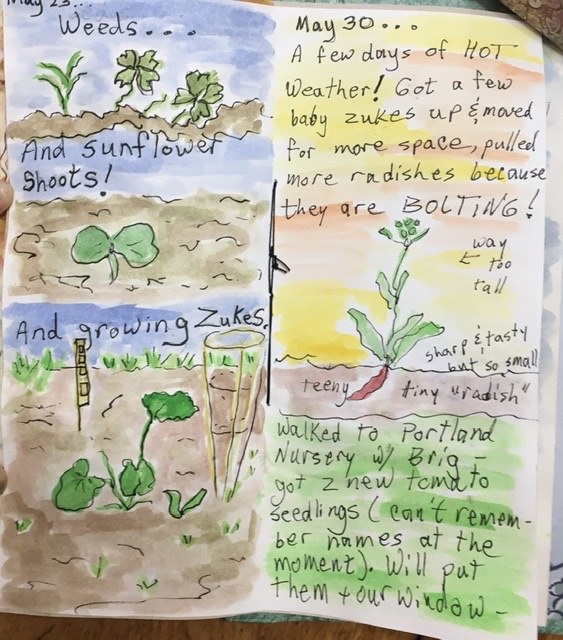 May 23...
Weeds....
And sunflower
Shoots!
And growing Zukes.
May 30...
A few days of HOT
Weather! Got a few
baby zukes up & moved
for more space, pulled
more radishes because
they are BOLTING!
way
too
tall
sharp & tasty
but so small
teeny tiny "radish"
Walked to Portland
Nursery w/ Brig -
got 2 new tomato
seedlings (can't remem-
ber names at the
moment). Will put
them + our window -